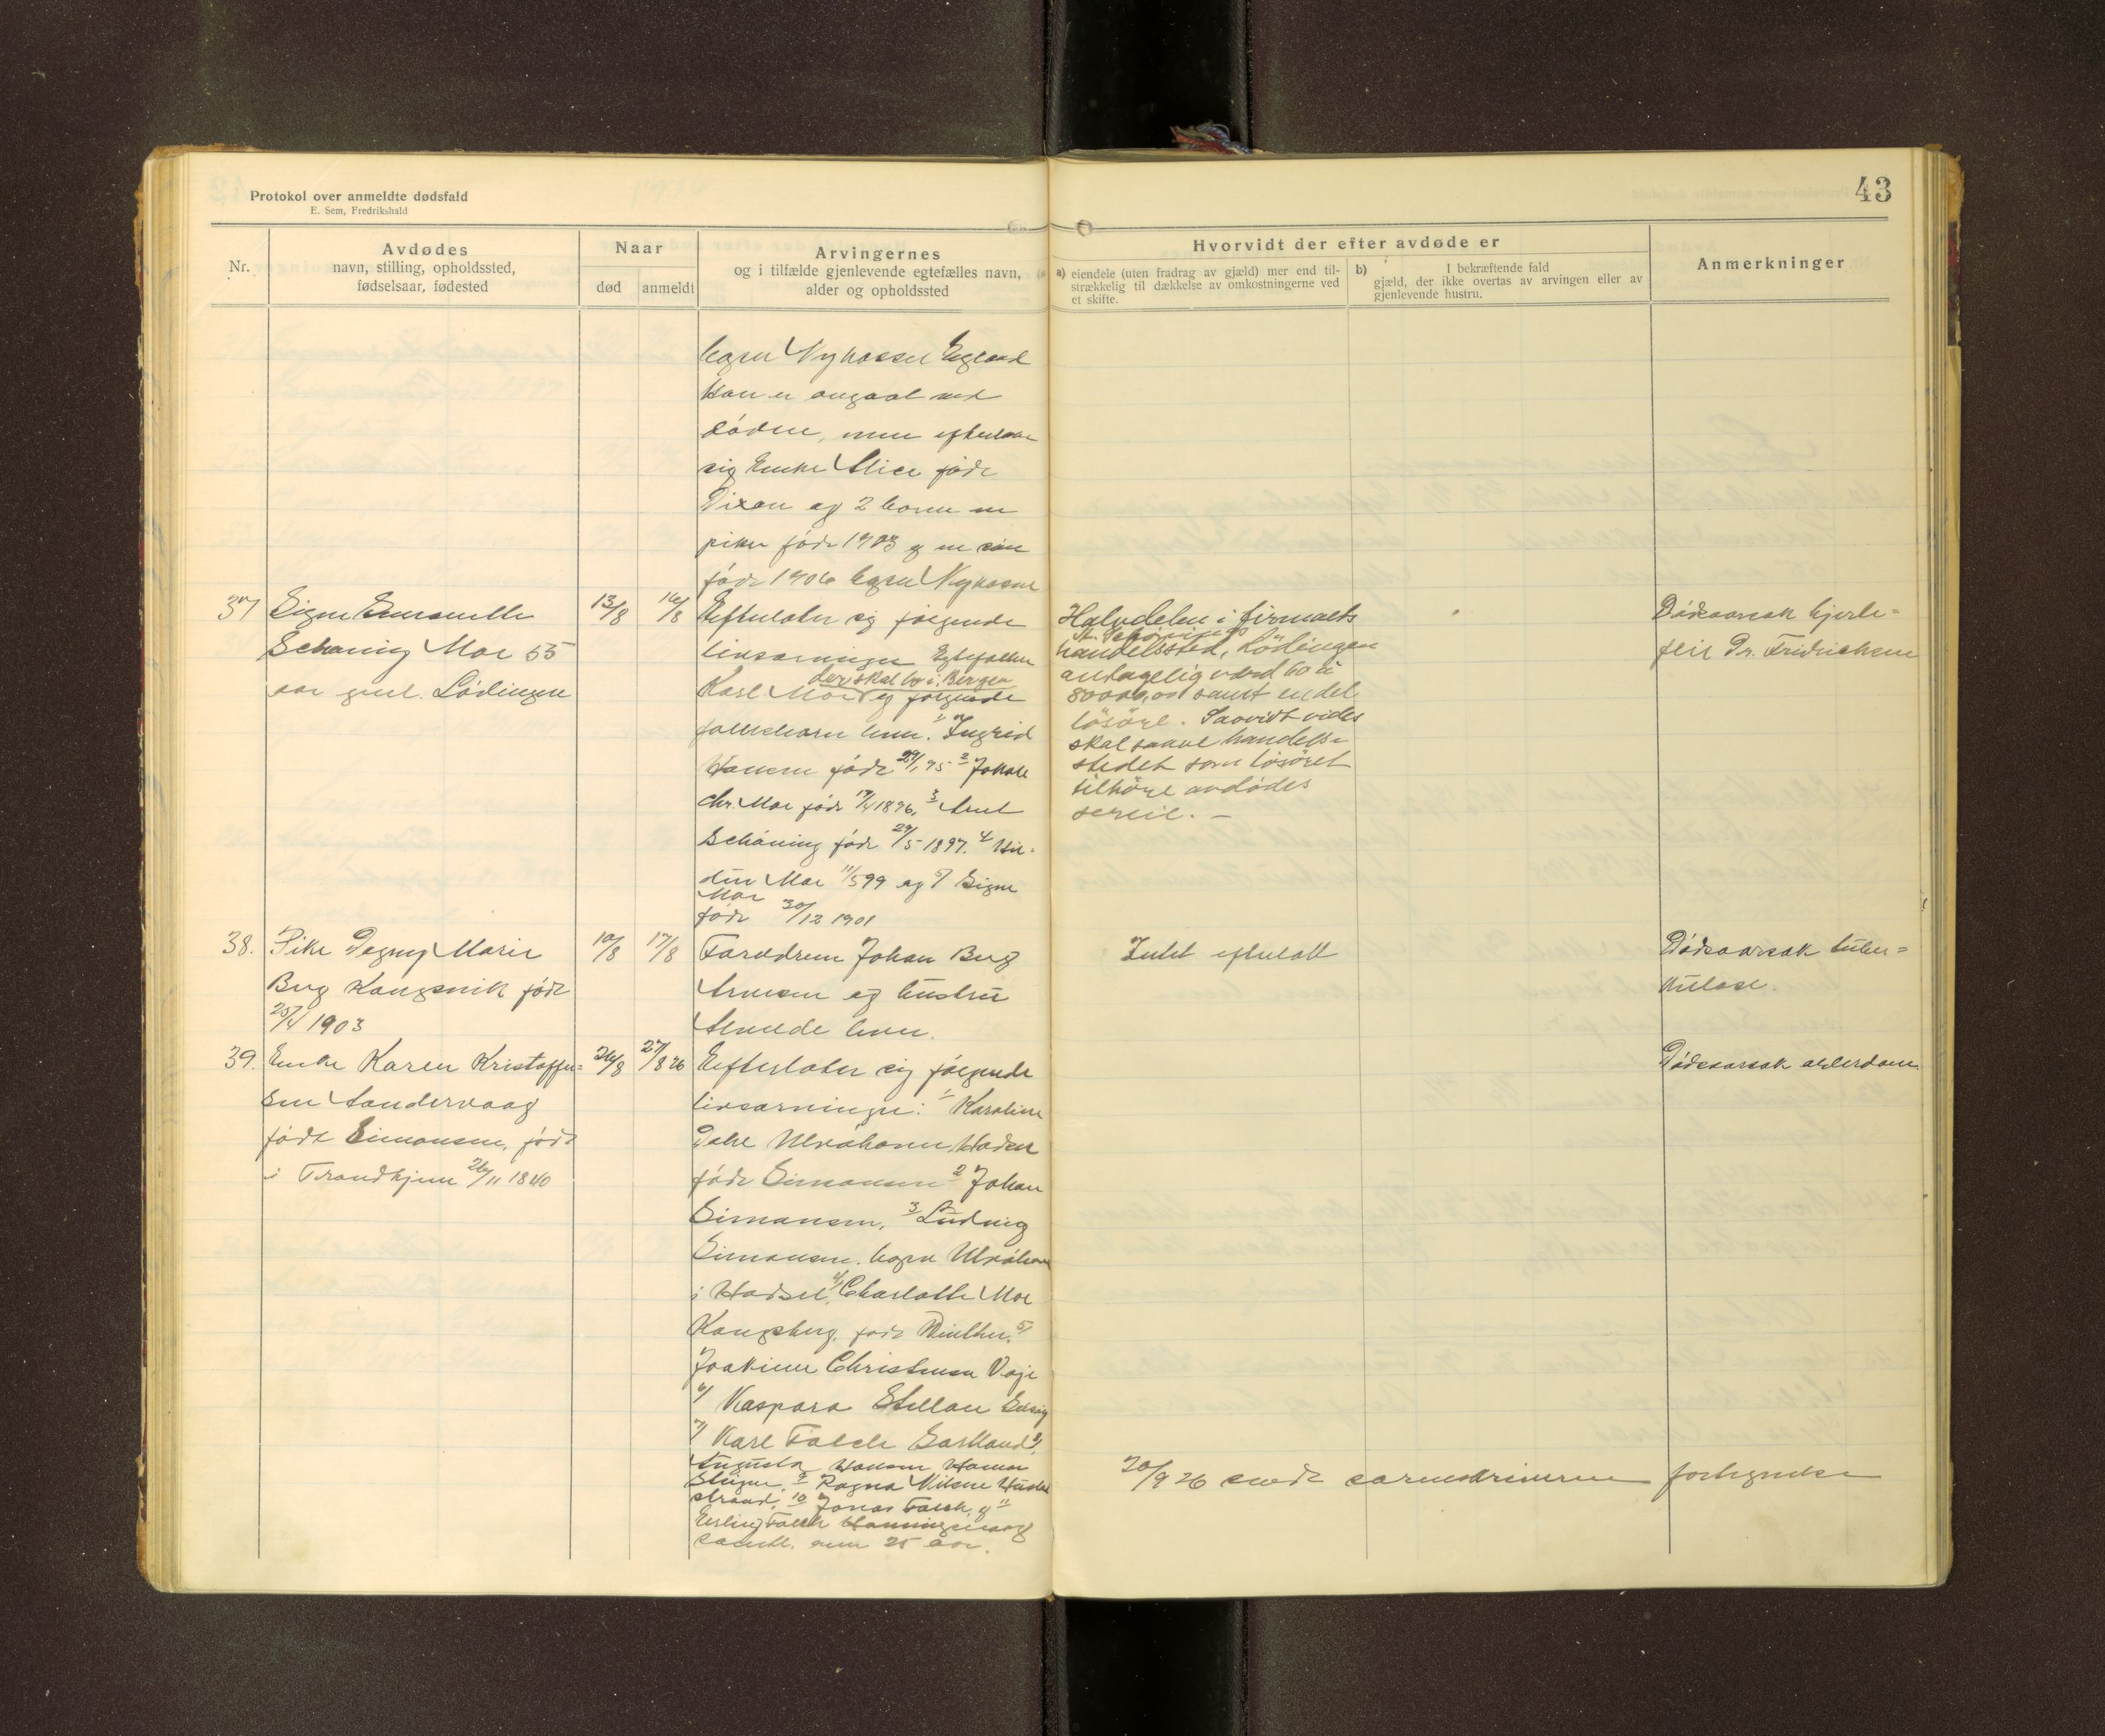 Protokol over anmeldte dødsfald
E. Sem, Fredrikshald
43
Nr.
Avdødes
navn, stilling, opholdssted,
fødselsaar, fødested
Naar
død
anmeldt
Arvingernes
og i tilfælde gjenlevende egtefælles navn,
alder og opholdssted
Hvorvidt der efter avdøde er
a) eiendele (uten fradrag av gjæld) mer end til-
strækkelig til dækkelse av omkostningerne ved
et skifte.
b) I bekræftende fald
gjæld, der ikke overtas av arvingen eller av
gjenlevende hustru.
Anmerkninger
Han er ved
døden, men
sig Enke Alice født
Dixon og 2 born en
pike født 1903 og en søn
født 1906
37 Signe
Schøning Moe 55
aar Lødingen
13/8
16/8
Efterlater sig følgende
livsarvinger Egtefællen
der skal bo i Bergen
Karl Moe og følgende
Ingrid
Hansen født 29/1 95 2 Johall
Chr. Moe født 17/4 1896, 3
Schøning født 29/5-1897. 4 Hil-
Moe 11/5 99 og 5/ Signe
Moe
født 30/12 1901
Halvdelen i firmaets
handelssted, Lödingen
antagelig værd 60 à
80000,00 samt endel
lösöre. Saavidt vides
skal saavel handels-
stedet som lösöret
tilhöre avdödes
særeie. —
Dødsaarsak hjerte-
feil Dr. Fridrichsen
38. Pike Dagny Marie
Berg Kongsvik født
25/4 1903
10/8
17/8
Forældrene Johan Berg
Arnesen og hustru
Intet efterlatt
Dødsaarsak tuber-
kulose.
39. Enke Karen Kristoffer-
sen Sandervaag
født Simonsen, født
i Trondhjem 26/11 1840
26/8
27/8 26
Efterlater sig følgende
livsarvinger: 1/ Karoline
Dahl Ulvøhavn, Hadsel
født Simonsen 2 Johan
Simonsen, 3 Ludvig
Simonsen. Ulvøhavn
i Hadsel, 4/ Charlotte Moe
Kongsberg, født Winther. 5/
Joakim Christensen
6/ Kaspara
7/ Karl Falch
Augusta Hansen
9 Ragna Nilsen
10 Jonas Falch, og 11
Erling Falch Honningsvaag
samtl. over 25 aar.
Dødsaarsak alderdom
20/9 26 fortegnelse